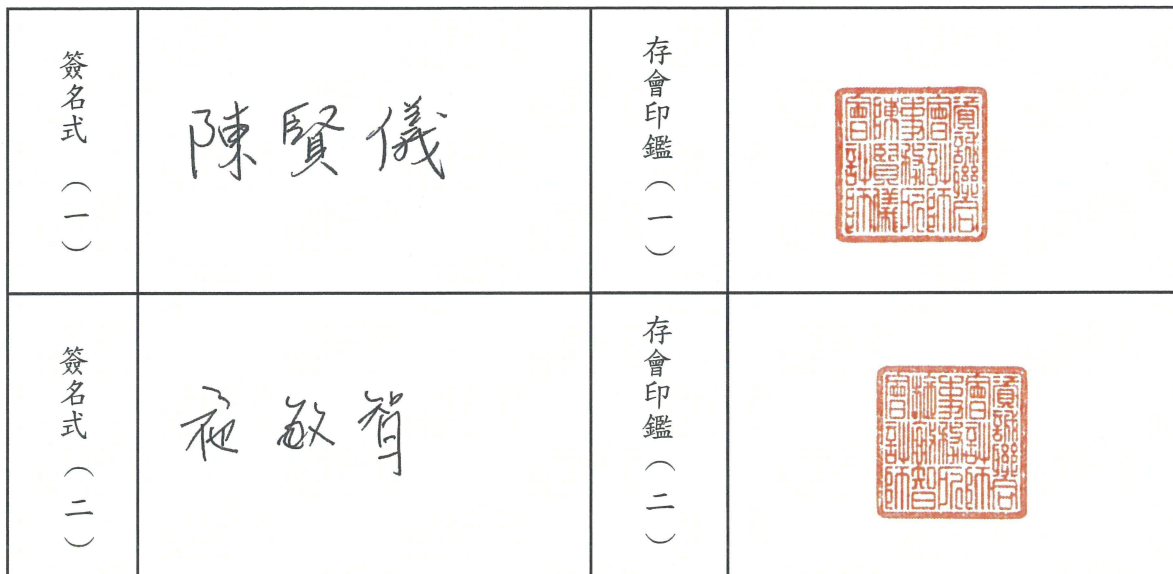 簽名式（一）
陳賢儀
存會印鑑（一）
資誠聯合
會計師
事務所
陳賢儀
會計師
簽名式（二）
敏智
存會印鑑（二）
資誠聯合
會計師
事務所
敏智
會計師